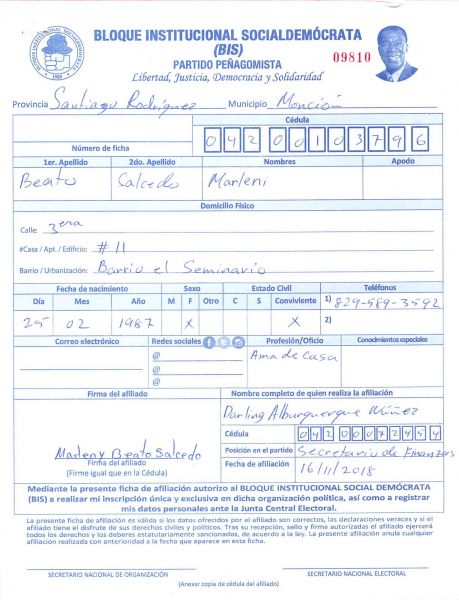 BLOQUE INSTITUCIONAL SOCIALDEMÓCRATA
(BIS)
PARTIDO PEÑAGOMISTA
Libertad, Justicia, Democracia y Solidaridad
09810
Provincia Santiago Rodríguez Municipio Monción
Número de ficha
Cédula
04200103796
1er. Apellido 2do. Apellido Nombres Apodo
Beato Salcedo Marleni
Domicilio Físico
Calle: 3era
#Casa / Apt. / Edificio: # 11
Barrio / Urbanización: Barrio el Seminario
Fecha de nacimiento Sexo Estado Civil Teléfonos
Día Mes Año M F Otro C S Conviviente 1) 829-589-3592
25 02 1987 X X 2)
Correo electrónico Redes sociales Profesión/Oficio Conocimientos especiales
@ Ama de Casa
@
@
Firma del afiliado Nombre completo de quien realiza la afiliación
Darling Alburquerque Núñez
Cédula 04200072454
Marleny Beato Salcedo
Posición en el partido Secretario de Finanzas
Firma del afiliado
(Firme igual que en la Cédula)
Fecha de afiliación 16/11/2018
Mediante la presente ficha de afiliación autorizo al BLOQUE INSTITUCIONAL SOCIAL DEMÓCRATA
(BIS) a realizar mi inscripción única y exclusiva en dicha organización política, así como a registrar
mis datos personales ante la Junta Central Electoral.
La presente ficha de afiliación es válida si los datos ofrecidos por el afiliado son correctos, las declaraciones veraces y si el
afiliado tiene el disfrute de sus derechos civiles y políticos. Tras su recepción, sello y firma autorizados el afiliado ejercerá
todos los derechos y los deberes estatutariamente sancionados, de acuerdo a la ley. La presente afiliación anula cualquier
afiliación realizada con anterioridad a la fecha que aparece en esta ficha.
SECRETARIO NACIONAL DE ORGANIZACIÓN SECRETARIO NACIONAL ELECTORAL
(Anexar copia de cédula del afiliado)